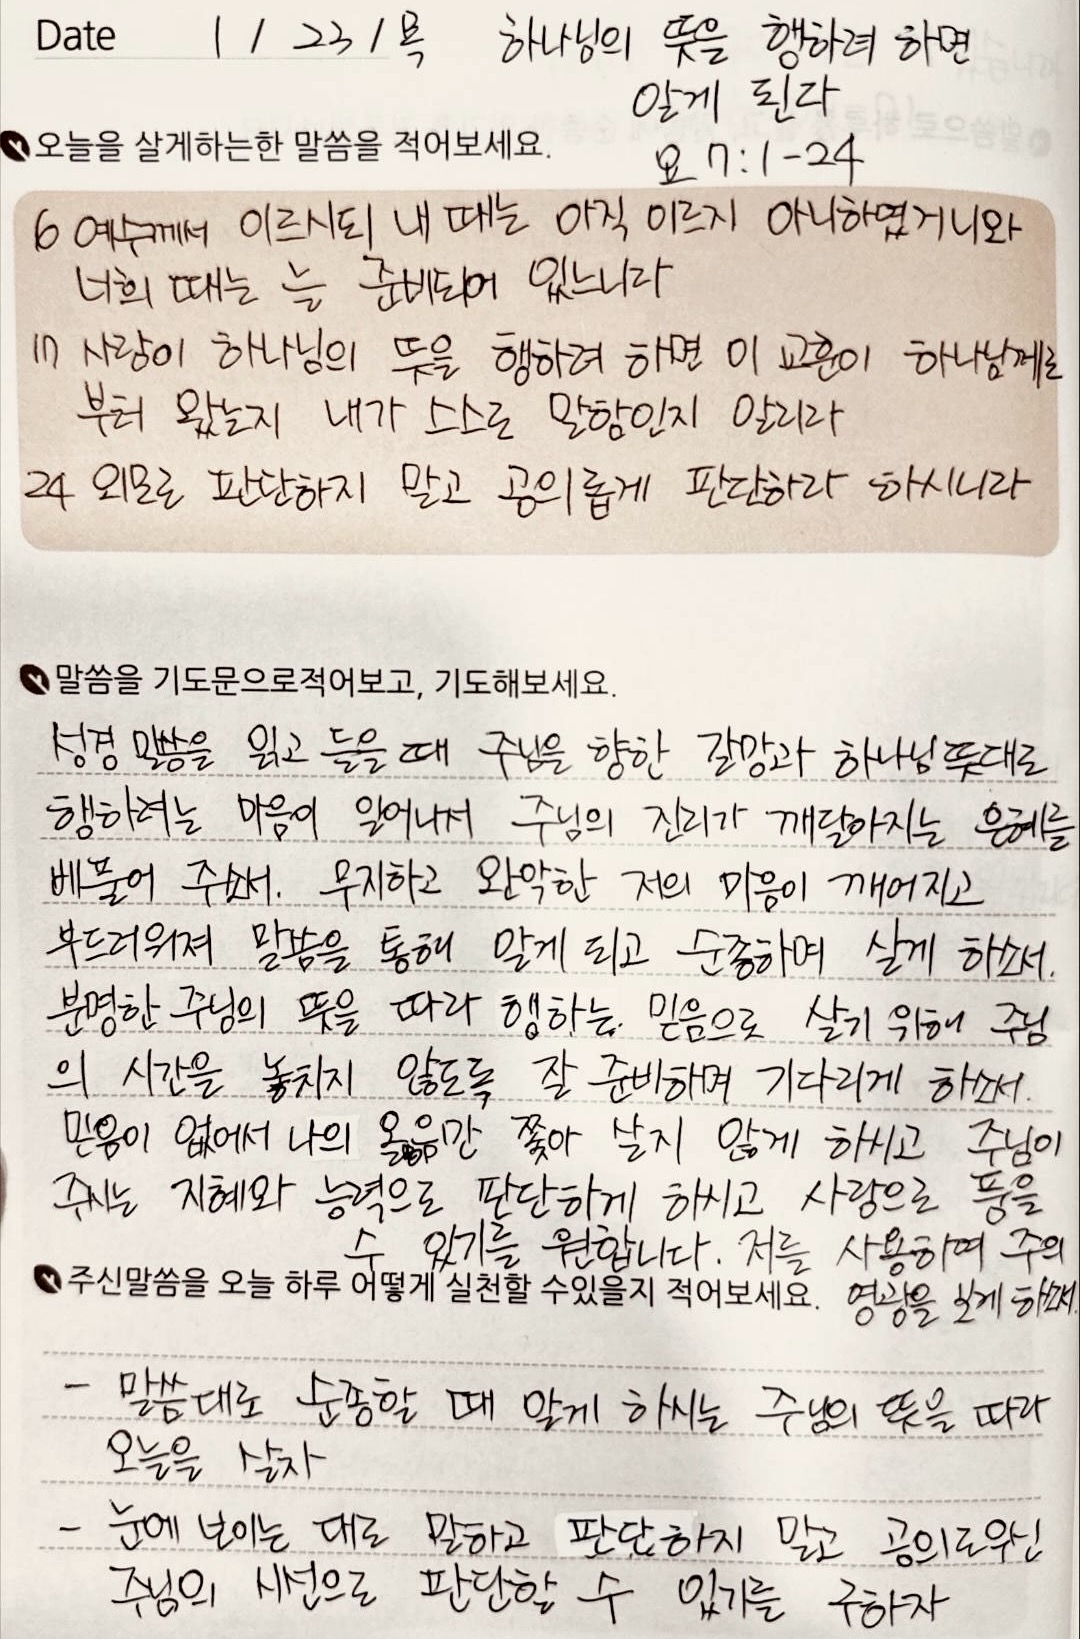 Date 1 / 23 / 목 하나님의 뜻을 행하려 하면
알게 된다
오늘을 살게하는한 말씀을 적어보세요.
요 7:1-24
6 예수께서 이르시되 내 때는 아직 이르지 아니하였거니와
너희 때는 늘 준비되어 있느니라
17 사람이 하나님의 뜻을 행하려 하면 이 교훈이 하나님께로
부터 왔는지 내가 스스로 말함인지 알리라
24 외모로 판단하지 말고 공의롭게 판단하라 하시니라
말씀을 기도문으로적어보고, 기도해보세요.
성경 말씀을 읽고 들을 때 주님을 향한 갈망과 하나님 뜻대로
행하려는 마음이 일어나서 주님의 진리가 깨달아지는 은혜를
베풀어 주소서. 무지하고 완악한 저의 마음이 깨어지고
부드러워져 말씀을 통해 알게 되고 순종하며 살게 하소서.
분명한 주님의 뜻을 따라 행하는 믿음으로 살기 위해 주님
의 시간을 놓치지 않도록 잘 준비하며 기다리게 하소서.
믿음이 없어서 나의 옳음만 쫓아 살지 않게 하시고 주님이
주시는 지혜와 능력으로 판단하게 하시고 사랑으로 품을
수 있기를 원합니다. 저를 사용하여 주의
영광을 보게 하소서.
주신말씀을 오늘 하루 어떻게 실천할 수있을지 적어보세요.
- 말씀대로 순종할 때 알게 하시는 주님의 뜻을 따라
오늘을 살자
- 눈에 보이는 대로 말하고 판단하지 말고 공의로우신
주님의 시선으로 판단할 수 있기를 구하자